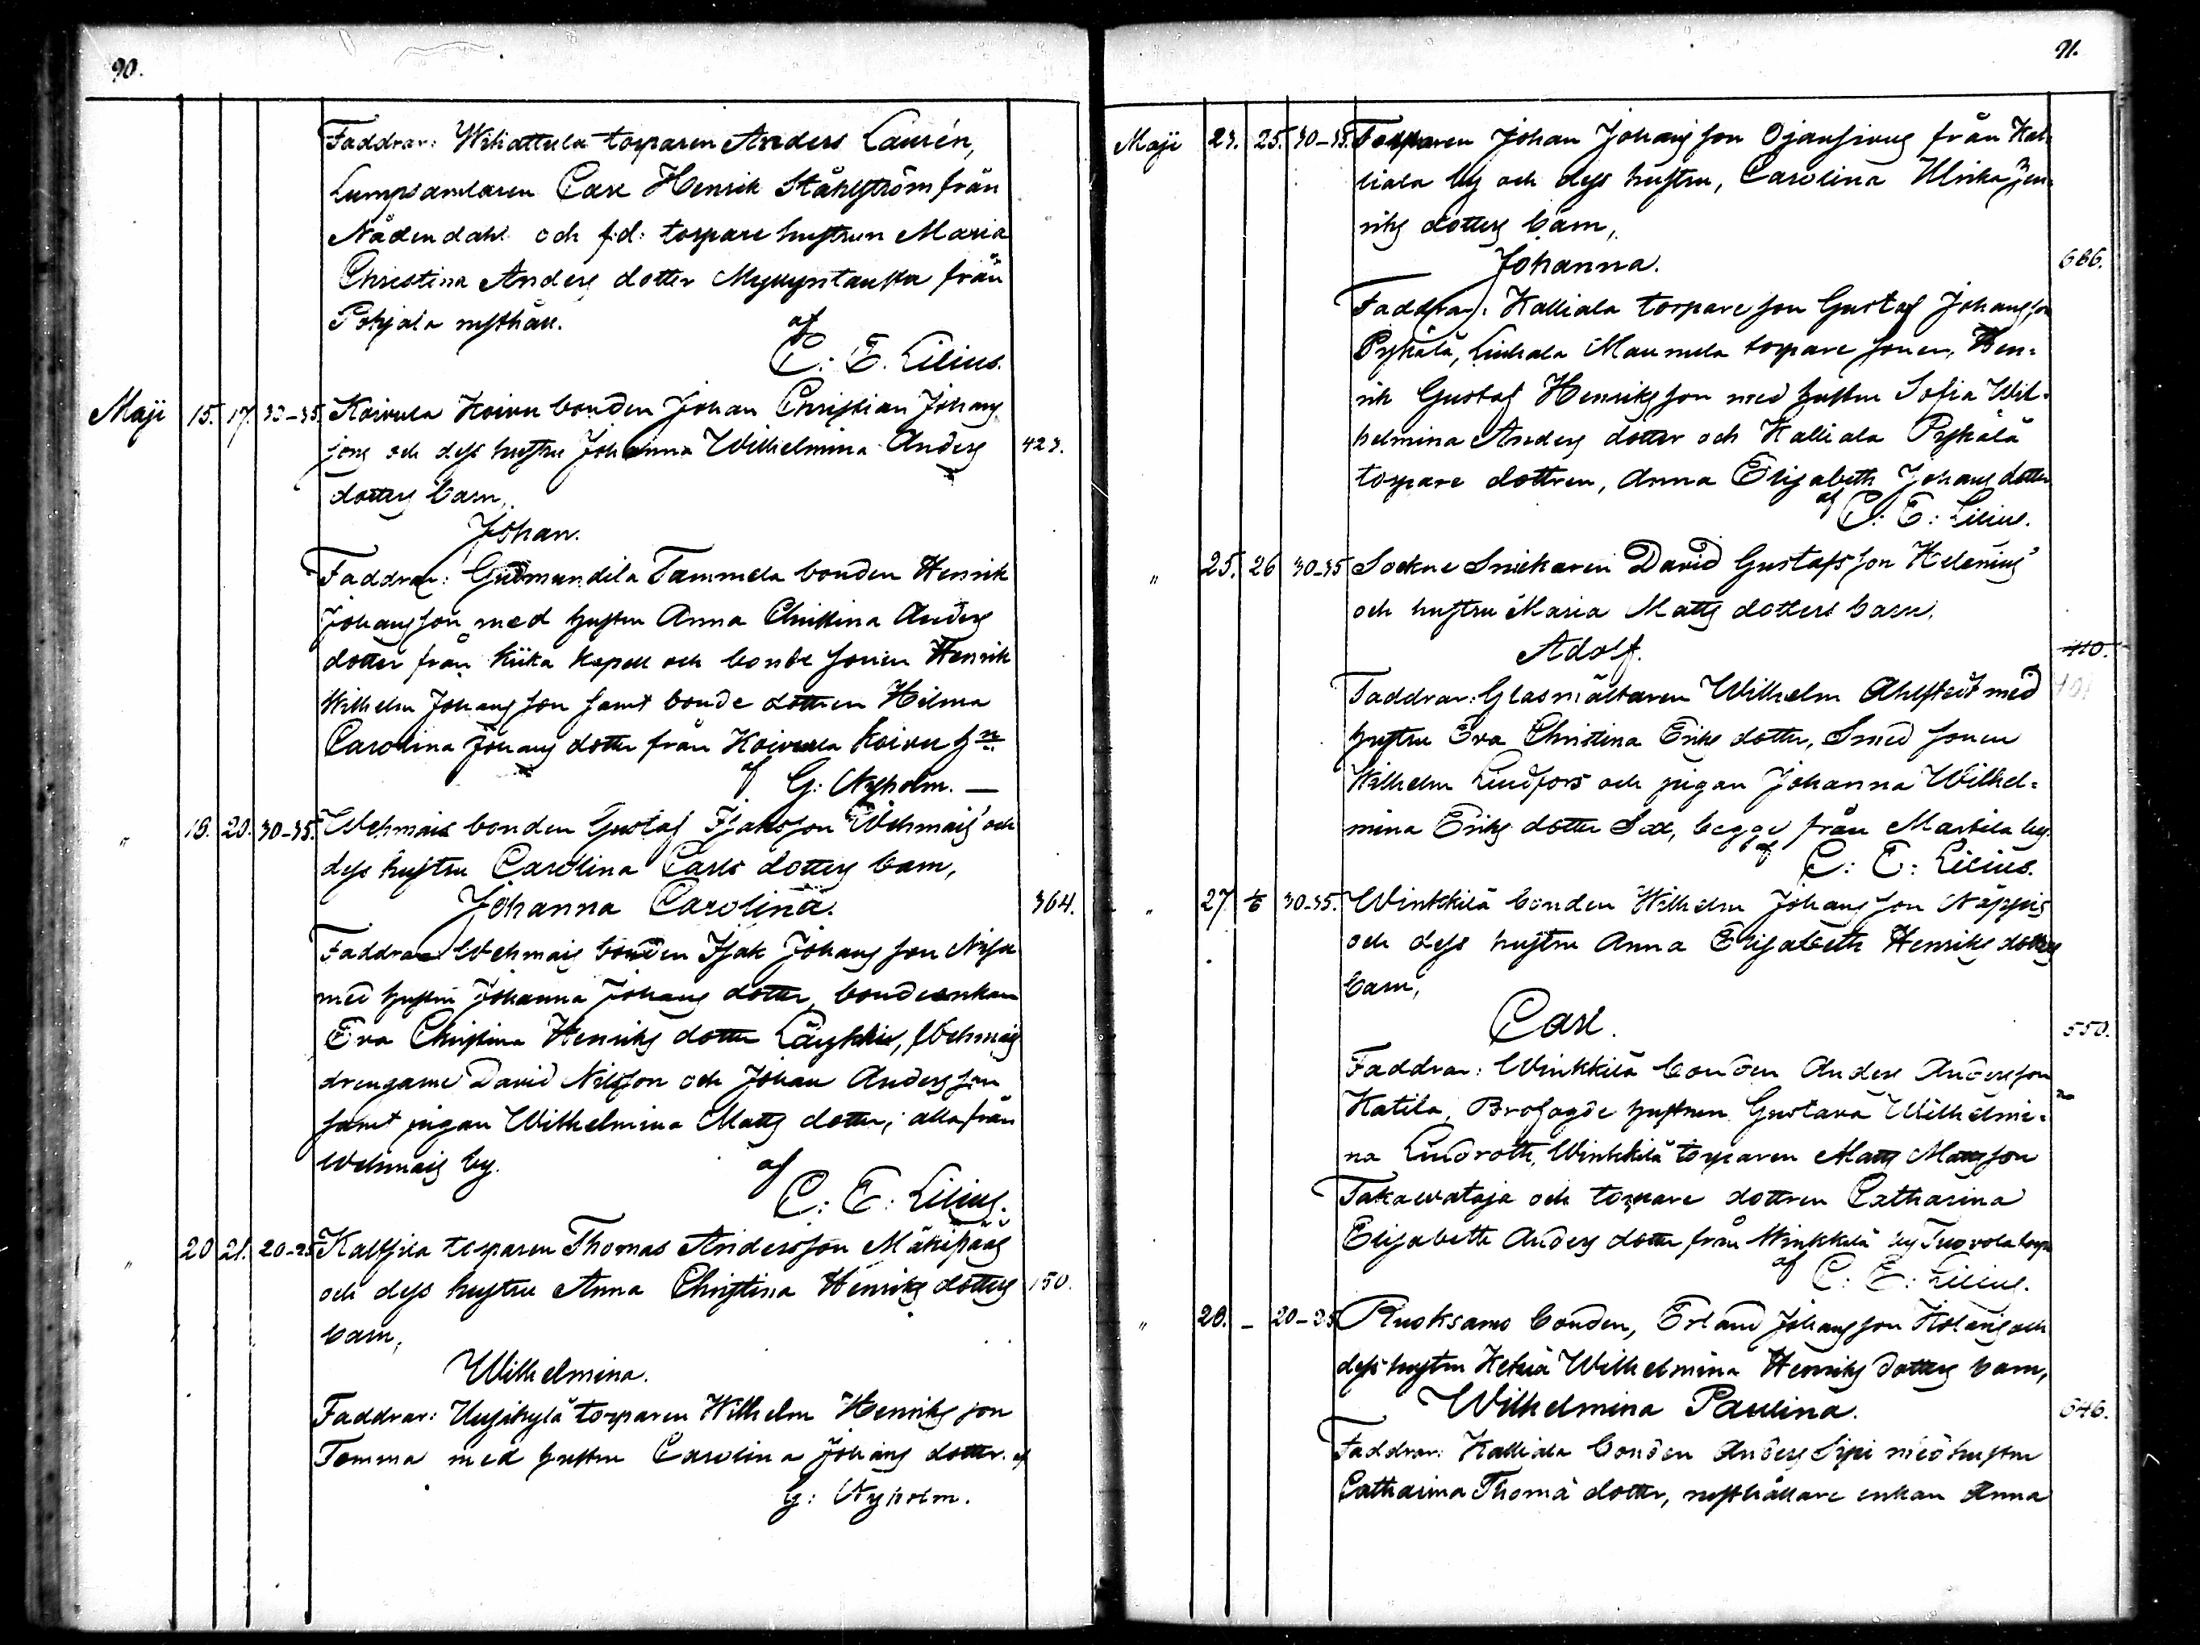 90.
Faddrar: Wihattula torparen Anders Laurén,
Lumpsamlaren Carl Henrik Ståhlström från
Nådendahl och f.d: torpare hustrun Maria
Christina Anders dotter Mykyntausta från
Pohjala rusthåll. af
C: E. Lilius.
Maji 15. 17. 30-35. Koivula Koivu bonden Johan Christian Johans
sons och dess hustru Johanna Wilhelmina Anders 423.
dotters barn,
Johan.
Faddrar: Gudmundila Tammela bonden Henrik
Johansson med hustru Anna Christina Anders
dotter från Kiika Kapell och bonde sonen Henrik
Wilhelm Johansson samt bonde dottren Hilma
Carolina Johans dotter från Koivula Koivu hn
af G: Nyholm. —
" 19. 20. 30-35. Wehmais bonden Gustaf Isaksson Wehmais och
dess hustru Carolina Carls dotters barn,
Johanna Carolina. 364.
Faddrar Wehmais bonden Isak Johansson
med hustru Johanna Johans dotter, bondeenkan
Eva Christina Henriks dotter Läykki, Wehmais
drengarne David Nilsson och Johan Andersson
samt pigan Wilhelmina Matts dotter; alla från
Wehmais by. af
C: E: Lilius.
" 20 21. 20-25 Kaltsila torparen Thomas Andersson Mäkipääs
och dess hustru Anna Christina Henriks dotters 150.
barn,
Wilhelmina.
Faddrar: Uusikylä torparen Wilhelm Henriksson
Temma med hustru Carolina Johans dotter. af
G: Nyholm.
91.
Maji 23. 25. 30-35. Torparen Johan Johansson Ojansivus från Kal-
liala by och dess hustru, Carolina Ulrika Hen-
riks dotters barn,
Johanna. 686.
Faddrar: Kalliala torpare son Gustaf Johansson
Pyhälä, Liuhala Maunula torpare sonen, Hen-
rik Gustaf Henriksson med hustru Sofia Wil-
helmina Anders dotter och Kalliala Pyhälä
torpare dottren, Anna Elisabeth Johans dotter
af C: E: Lilius.
" 25. 26 30-35 Sockne Snickaren David Gustafsson Helenius
och hustru Maria Matts dotters barn.
Adolf. 410.
Faddrar: Glasmästaren Wilhelm Ahlstedt med
hustru Eva Christina Eriks dotter, Smed sonen
Wilhelm Lindfors och pigan Johanna Wilhel-
mina Eriks dotter Sax, begge från Marttila by.
af C: E: Lilius.
" 27 30-35. Winkkilä bonden Wilhelm Johansson Näppis
och dess hustru Anna Elisabeth Henriks dotters
barn,
Carl. 550.
Faddrar: Winkkilä bonden Anders Andersson
Katila, Brofogde hustrun Gustava Wilhelmi-
na Lindroth, Winkkilä torparen Matts Mattsson
Takawataja och torpare dottren Catharina
Elisabeth Anders dotter från Winkkilä by Tuovola torp
af C: E: Lilius.
" 20. – 20-25 Ruoksamo bonden, Erland Johansson Kolans och
dess hustru Wilhelmina Henriks dotters barn,
Wilhelmina Paulina. 646.
Faddrar: Kalliala bonden Anders Sipi med hustru
Catharina Thomä dotter, rusthållare enkan Anna